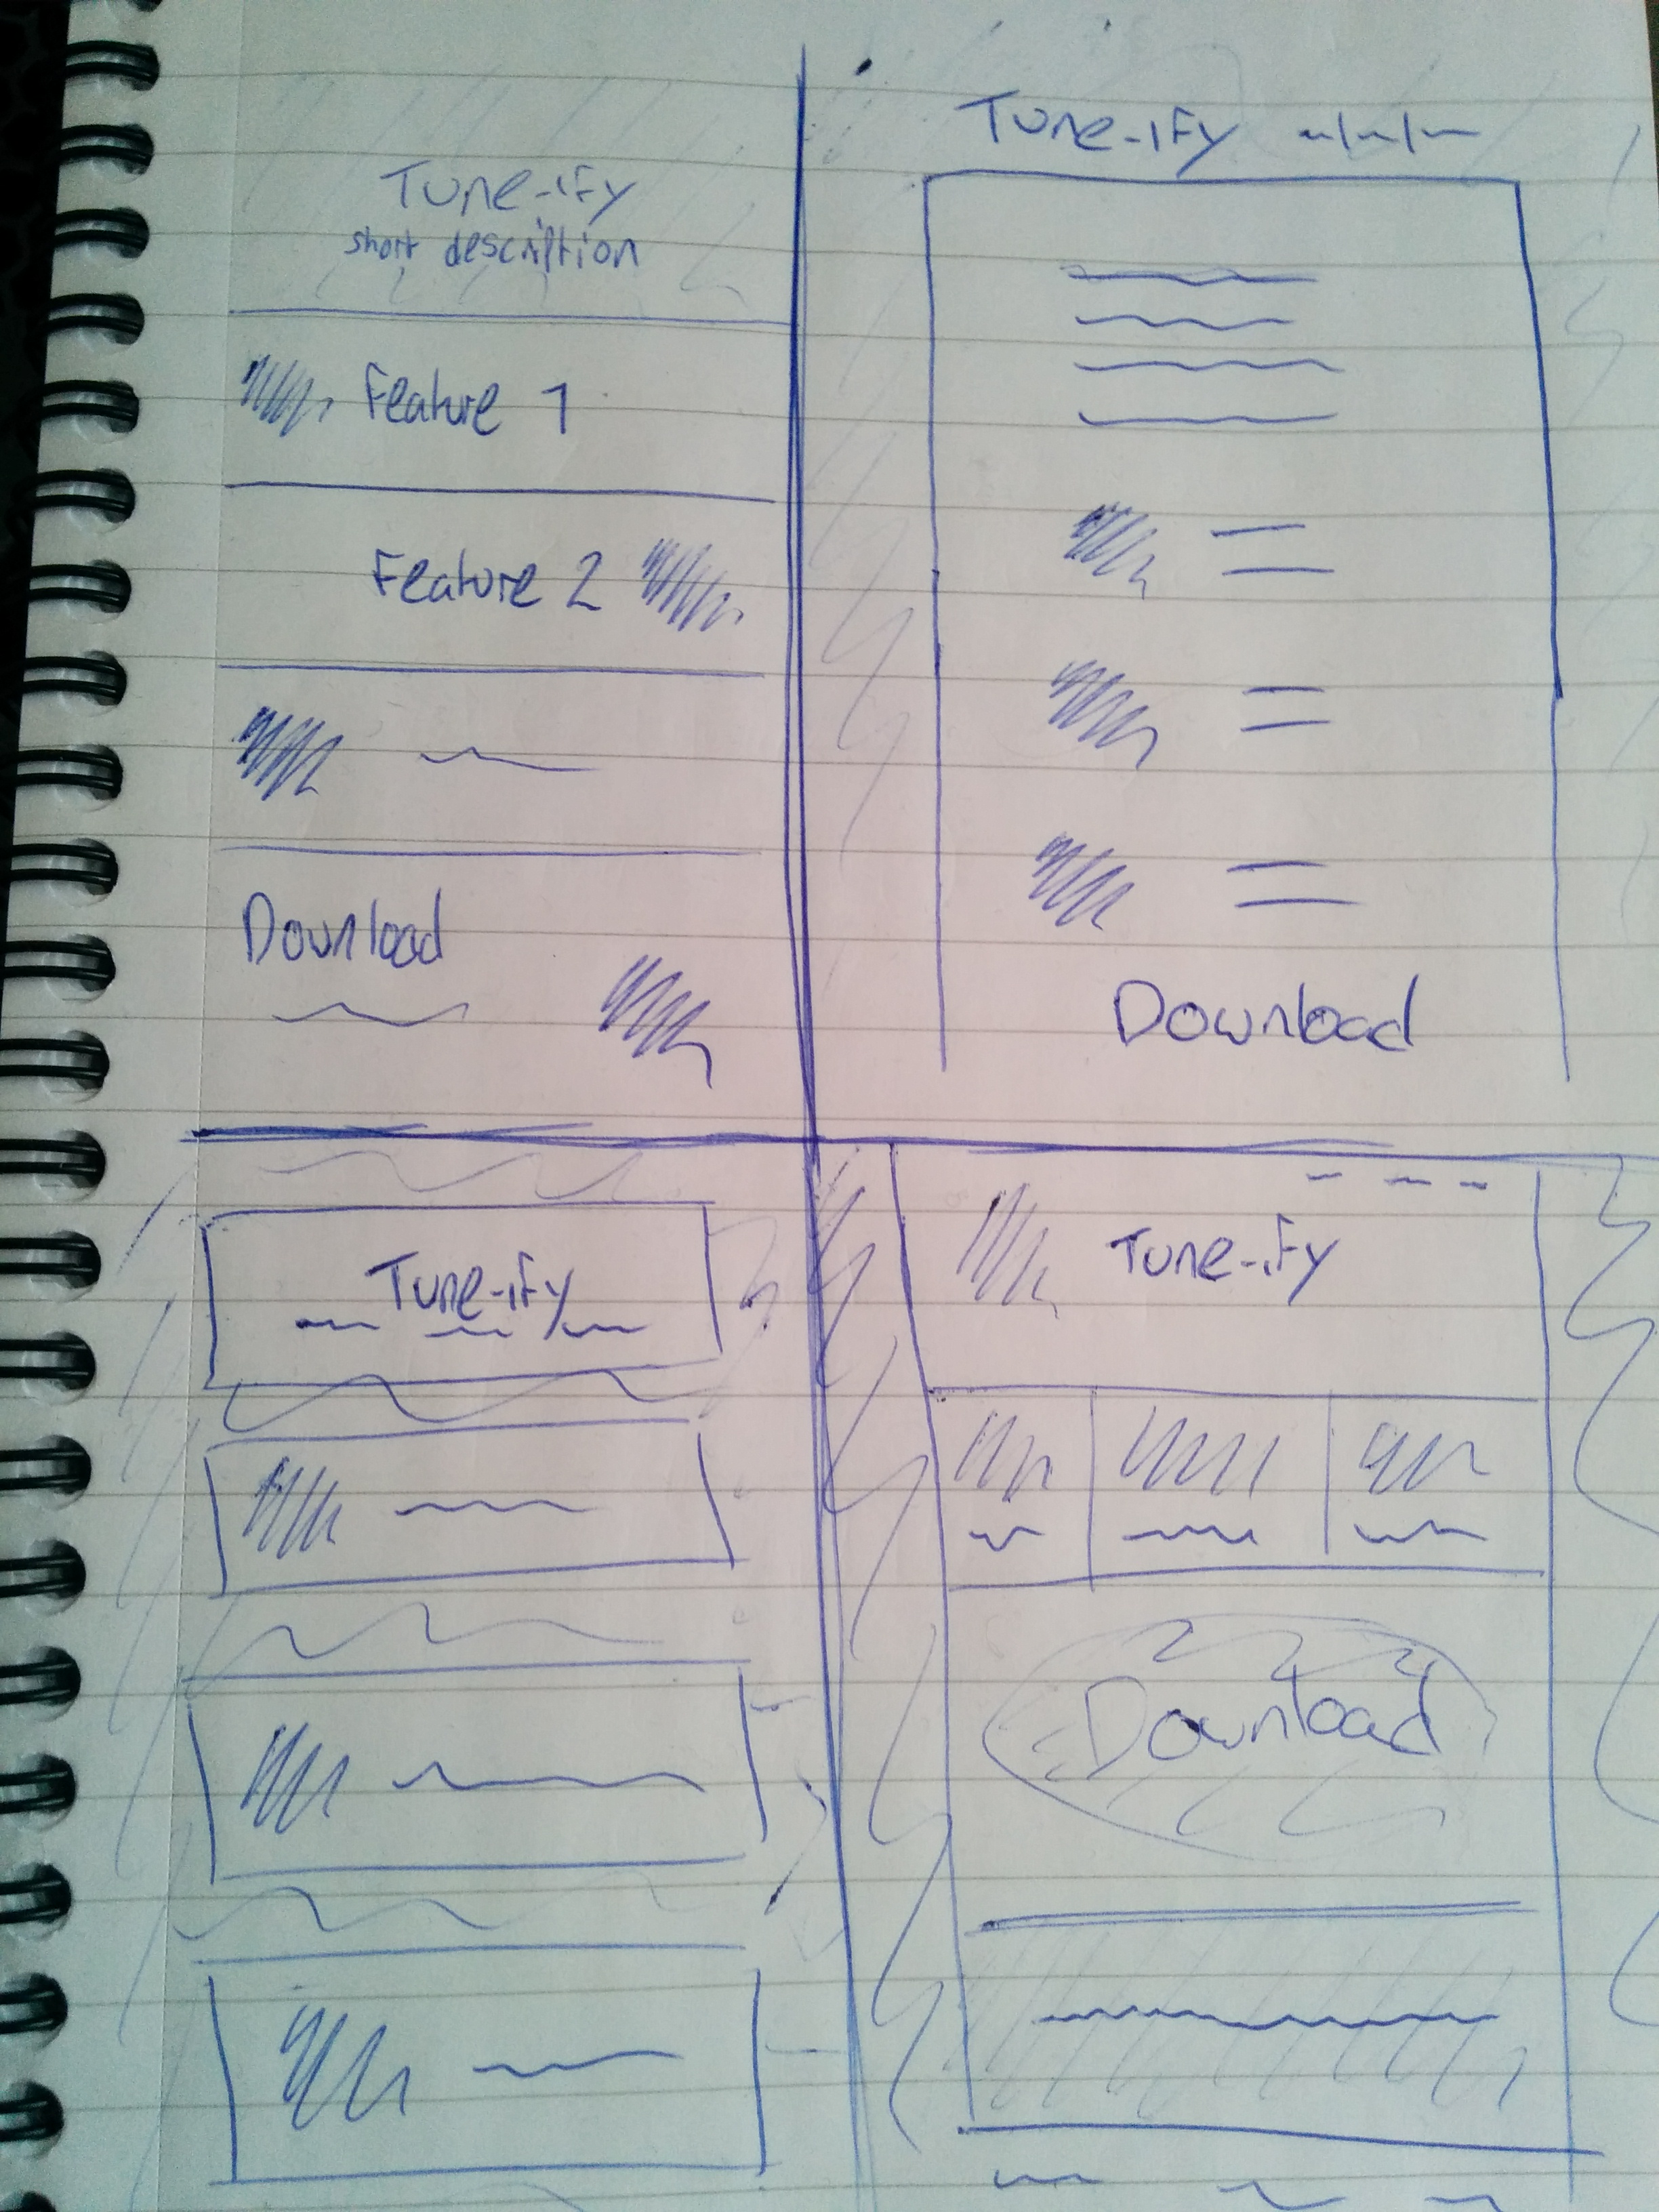 Tune-ify
short description
Feature 1
Feature 2
Download
Tune-ify
Download
Tune-ify
Tune-ify
Download